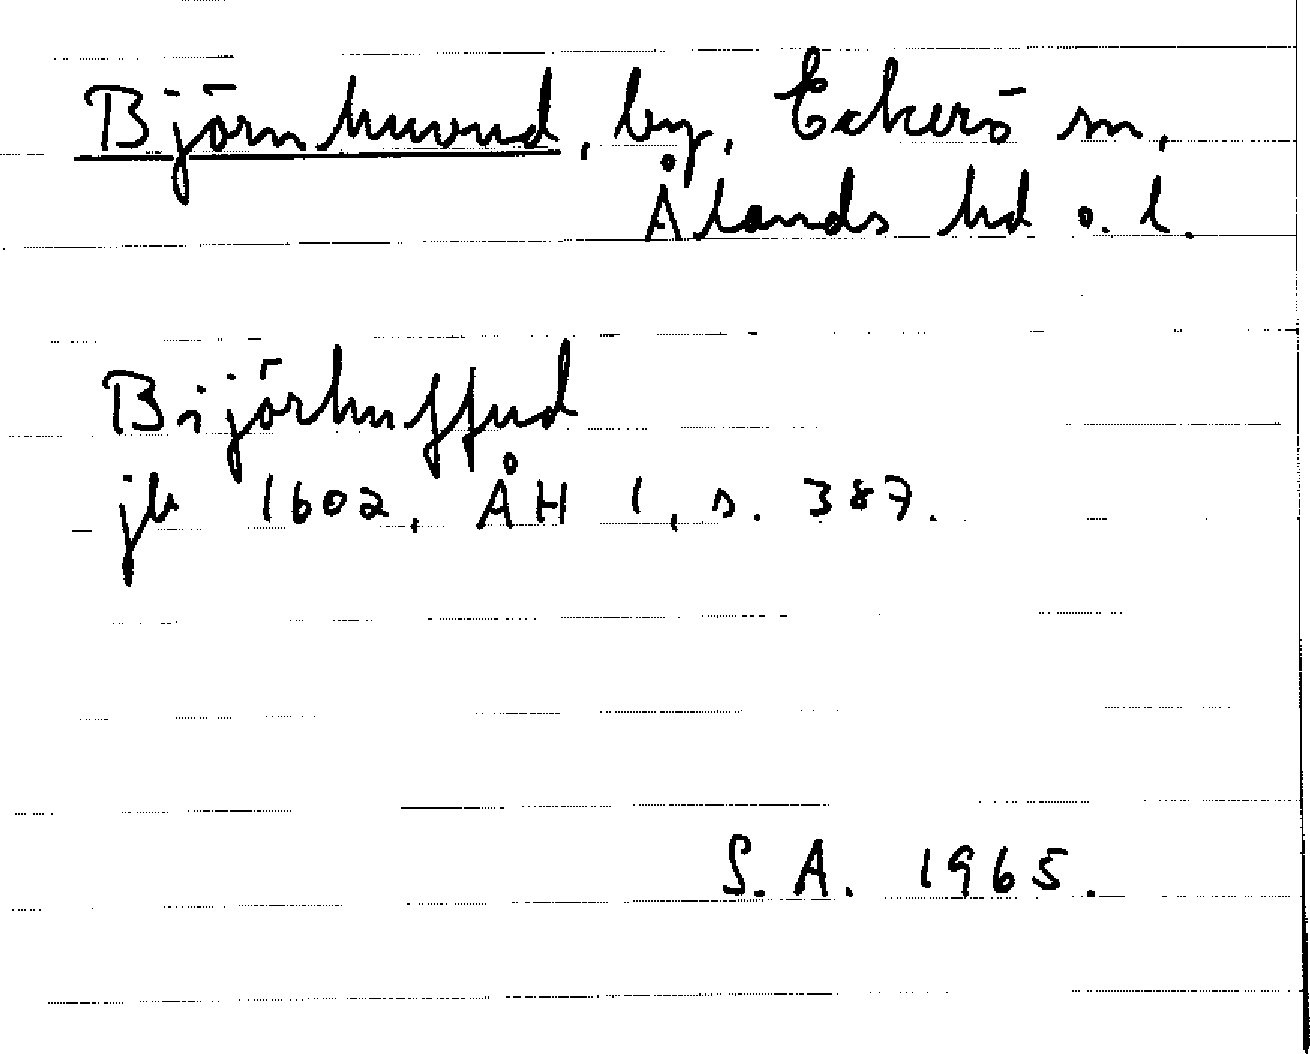 Björnhuvud, by, Eckerö sn,
Ålands hd o. l.
Bijörhuffud
jb 1602, ÅH 1, s. 387.
S.A. 1965.